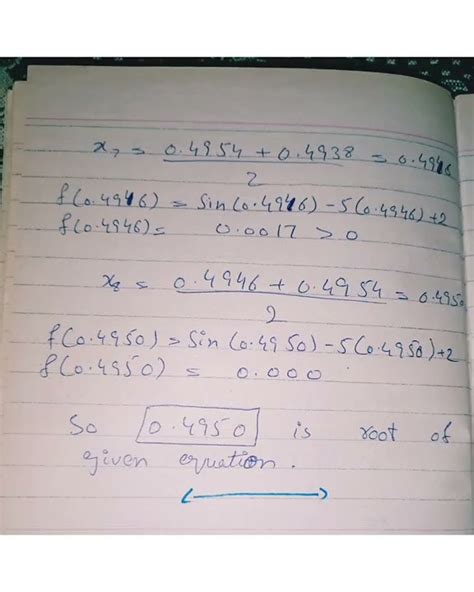 x₇ = 0.4954 + 0.4938 / 2 = 0.4946
f(0.4946) = Sin(0.4946) - 5(0.4946) + 2
f(0.4946) = 0.0017 > 0
x₈ = 0.4946 + 0.4954 / 2 = 0.4950
f(0.4950) = Sin(0.4950) - 5(0.4950) + 2
f(0.4950) = 0.000
So 0.4950 is root of
given equation.